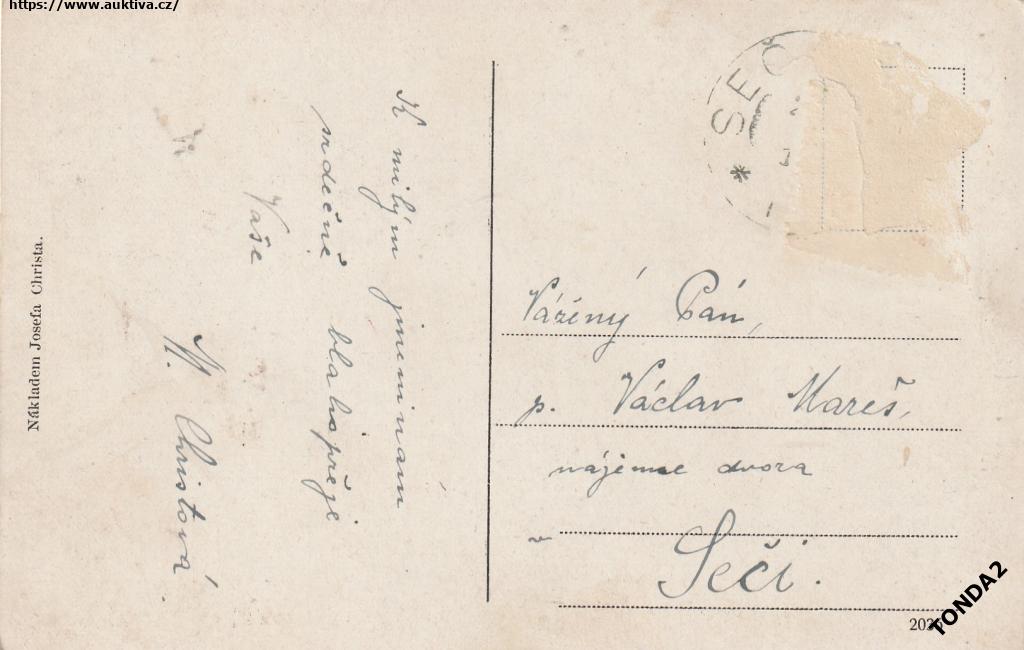 https://www.auktiva.cz/
Nákladem Josefa Christa.
K milým jmeninám
srdečně blahopřeje
Vaše
M. Christová
SEČ
Vážený Pán,
p. Václav Mareš,
nájemce dvora
v Seči.
FONDA2